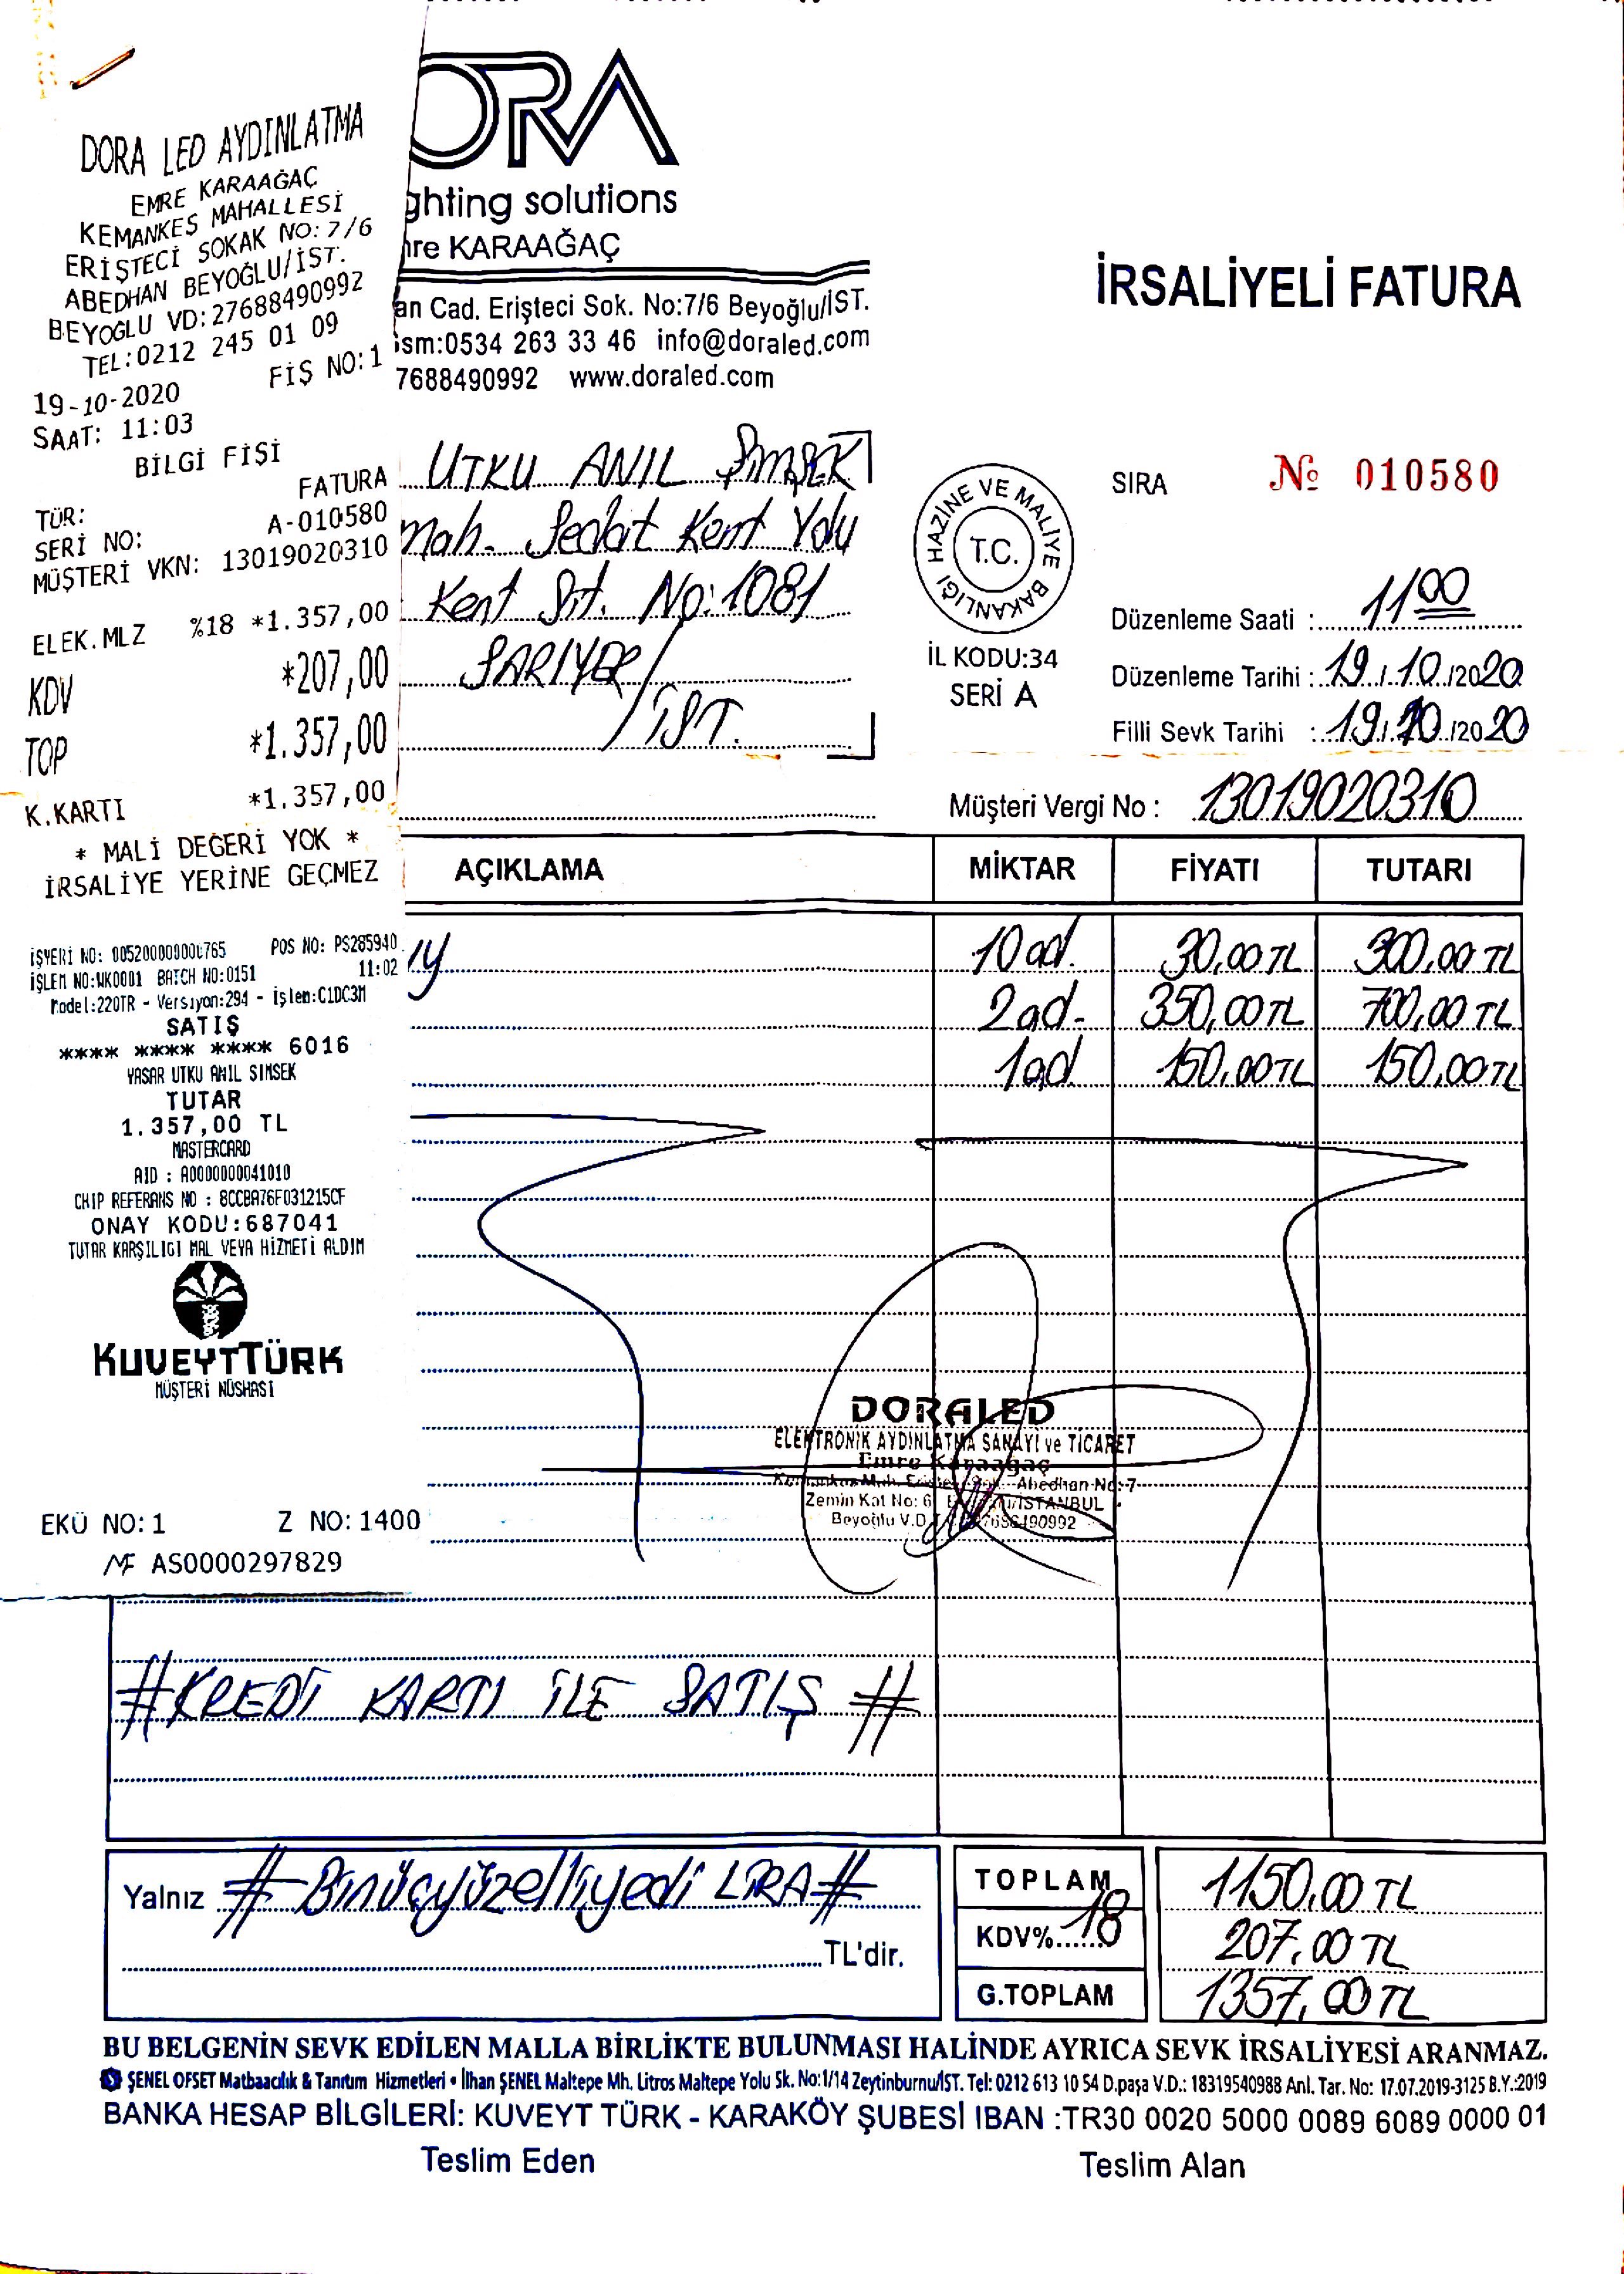 DORA LED AYDINLATMA
EMRE KARAAĞAÇ
KEMANKEŞ MAHALLESİ
ERİŞTECİ SOKAK NO:7/6
ABEDHAN BEYOĞLU/İST.
BEYOGLU VD:27688490992
TEL:0212 245 01 09
19-10-2020 FİŞ NO:1
SAAT: 11:03
BİLGİ FİŞİ
TÜR: FATURA
SERİ NO: A-010580
MÜŞTERİ VKN: 13019020310
ELEK.MLZ %18 *1.357,00
KDV *207,00
TOP *1.357,00
K.KARTI *1.357,00
* MALİ DEĞERİ YOK *
İRSALİYE YERİNE GEÇMEZ
POS NO: PS285940
İŞLEM NO:WK0001 BATCH NO:0151 11:02
Model:220TR - Versiyon:294 - İşlem:C1DC3M
SATIŞ
**** **** **** 6016
YASAR UTKU ANIL SIMSEK
TUTAR
1.357,00 TL
MASTERCARD
AID : A0000000041010
CHIP REFERANS NO : 8CCBA76F031215CF
ONAY KODU:687041
TUTAR KARŞILIGI MAL VEYA HİZMETİ ALDIM
KUVEYTTÜRK
MÜŞTERİ NÜSHASI
EKÜ NO:1 Z NO:1400
MF AS0000297829
ORA
ghting solutions
re KARAAĞAÇ
an Cad. Erişteci Sok. No:7/6 Beyoğlu/İST.
sm:0534 263 33 46 info@doraled.com
7688490992 www.doraled.com
İRSALİYELİ FATURA
UTKU ANIL ŞİMŞEK
mah. Sedat Kent Yolu
Kent Sit. No:1081
SARIYER/
İST.
HAZİNE VE MALİYE BAKANLIĞI
T.C.
İL KODU:34
SERİ A
SIRA № 010580
Düzenleme Saati : 11 00
Düzenleme Tarihi : 19/10/2020
Filli Sevk Tarihi : 19/10/2020
Müşteri Vergi No : 13019020310
AÇIKLAMA MİKTAR FİYATI TUTARI
10 ad. 30,00 TL 300,00 TL
2 ad. 350,00 TL 700,00 TL
1 ad. 150,00 TL 150,00 TL
DORALED
ELEKTRONİK AYDINLATMA SANAYİ ve TİCARET
Emre Karaağaç
Abedhan No:7
Zemin Kat No: 6 İSTANBUL
Beyoğlu V.D.
#KREDİ KARTI İLE SATIŞ #
Yalnız # Binüçyüzelliyedi LİRA #
TL'dir.
TOPLAM 1150,00 TL
KDV% 18 207,00 TL
G.TOPLAM 1357,00 TL
BU BELGENİN SEVK EDİLEN MALLA BİRLİKTE BULUNMASI HALİNDE AYRICA SEVK İRSALİYESİ ARANMAZ.
ŞENEL OFSET Matbaacılık & Tanıtım Hizmetleri • İlhan ŞENEL Maltepe Mh. Litros Maltepe Yolu Sk. No:1/14 Zeytinburnu/İST. Tel: 0212 613 10 54 D.paşa V.D.: 18319540988 Anl. Tar. No: 17.07.2019-3125 B.Y.:2019
BANKA HESAP BİLGİLERİ: KUVEYT TÜRK - KARAKÖY ŞUBESİ IBAN :TR30 0020 5000 0089 6089 0000 01
Teslim Eden Teslim Alan